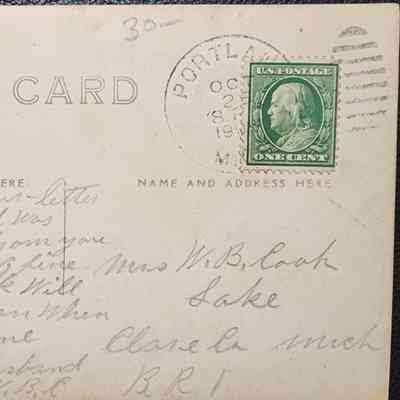 30—
CARD
PORTLA
OC
2
8
19
MI
U.S. POSTAGE
ONE CENT
ERE
NAME AND ADDRESS HERE
letter
was
from you
fine
Will
When
me
husband
W.B.C
Mrs W. B. Cook
Lake
Clare Co Mich
R R 1